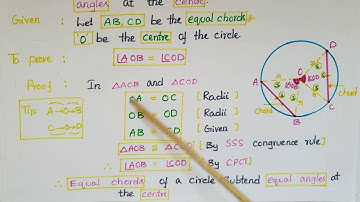 angles at the centre.
Given : Let AB, CD be the equal chords
'O' be the centre of the circle.
To prove : ∠AOB = ∠COD
Proof : In △AOB and △COD
OA = OC [Radii]
OB = OD [Radii]
AB = CD [Given]
△AOB ≅ △COD [By SSS congruence rule]
∴ ∠AOB = ∠COD [By CPCT]
∴ Equal chords of a circle Subtend equal angles at
the centre
Tip: A→O→B
C→O→D
D
O
A
B
C
chord
chord